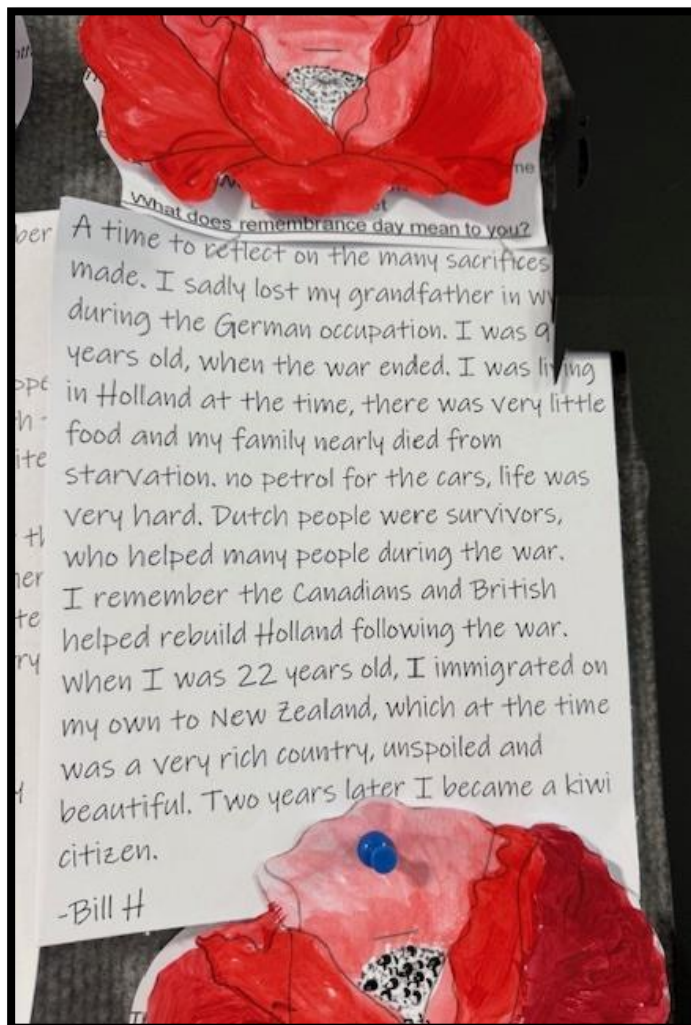 me
What does remembrance day mean to you?
A time to reflect on the many sacrifices
made. I sadly lost my grandfather in
during the German occupation. I was 9
years old, when the war ended. I was living
in Holland at the time, there was very little
food and my family nearly died from
starvation. no petrol for the cars, life was
very hard. Dutch people were survivors,
who helped many people during the war.
I remember the Canadians and British
helped rebuild Holland following the war.
When I was 22 years old, I immigrated on
my own to New Zealand, which at the time
was a very rich country, unspoiled and
beautiful. Two years later I became a kiwi
citizen.
-Bill H